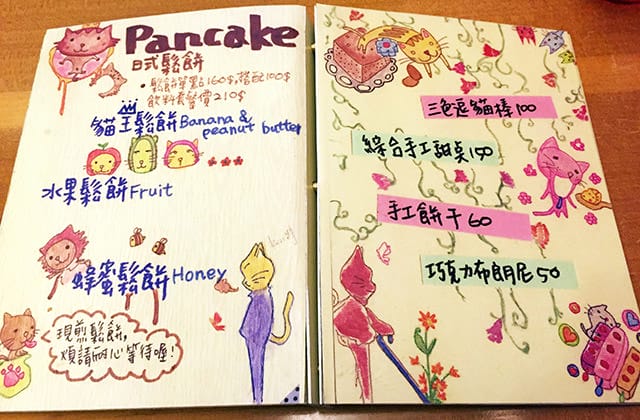 Pancake
日式鬆餅
鬆餅單點160$,搭配100$
飲料套餐價210$
貓王鬆餅Banana &
peanut butter
水果鬆餅Fruit
蜂蜜鬆餅Honey
現煎鬆餅,
煩請耐心等待喔!
三色逗貓棒100
綜合手工甜桌150
手工餅干60
巧克力布朗尼50